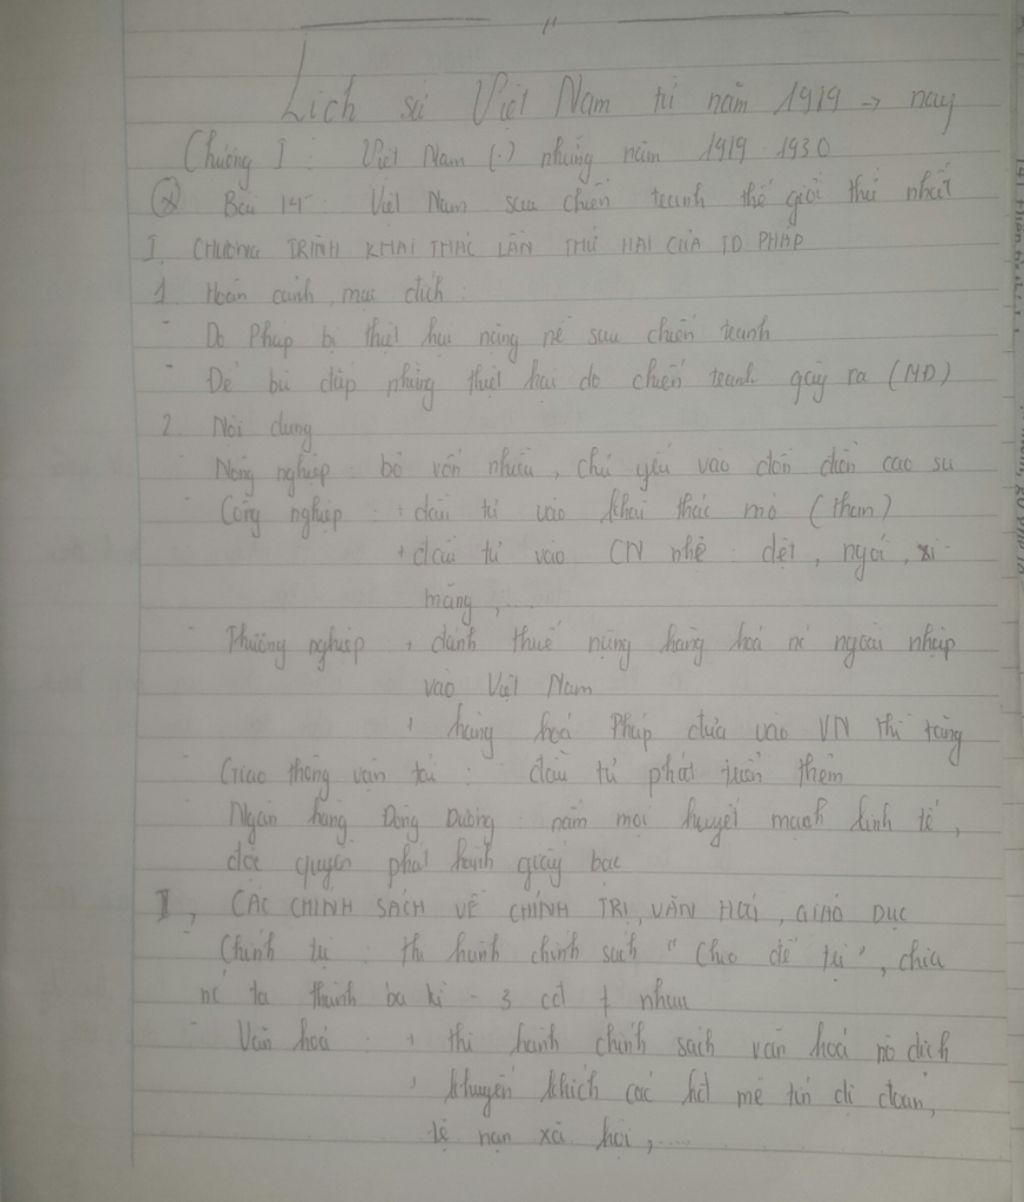 Lịch sử Việt Nam từ năm 1919 → nay
Chương I : Việt Nam (.) những năm 1919 - 1930
Bài 14 : Việt Nam sau chiến tranh thế giới thứ nhất
I. CHƯƠNG TRÌNH KHAI THÁC LẦN THỨ HAI CỦA TD PHÁP
1. Hoàn cảnh, mục đích :
- Do Pháp bị thiệt hại nặng nề sau chiến tranh
- Để bù đắp những thiệt hại do chiến tranh gây ra (MĐ)
2. Nội dung
- Nông nghiệp : bỏ vốn nhiều, chủ yếu vào đồn điền cao su
- Công nghiệp : + đầu tư vào khai thác mỏ (than)
+ đầu tư vào CN nhẹ : dệt, ngói, xi
măng, ....
- Thương nghiệp + đánh thuế nặng hàng hoá nc ngoài nhập
vào Việt Nam
+ hàng hoá Pháp đưa vào VN thì tăng
- Giao thông vận tải : đầu tư phát triển thêm
- Ngân hàng Đông Dương : nắm mọi huyết mạch kinh tế,
độc quyền phát hành giấy bạc
II, CÁC CHÍNH SÁCH VỀ CHÍNH TRỊ, VĂN HOÁ, GIÁO DỤC
- Chính trị : thi hành chính sách "Chia để trị", chia
nc ta thành ba kì - 3 cđ ≠ nhau
- Văn hoá : + thi hành chính sách văn hoá nô dịch
+ khuyến khích các hđ mê tín dị đoan,
tệ nạn xã hội, ....